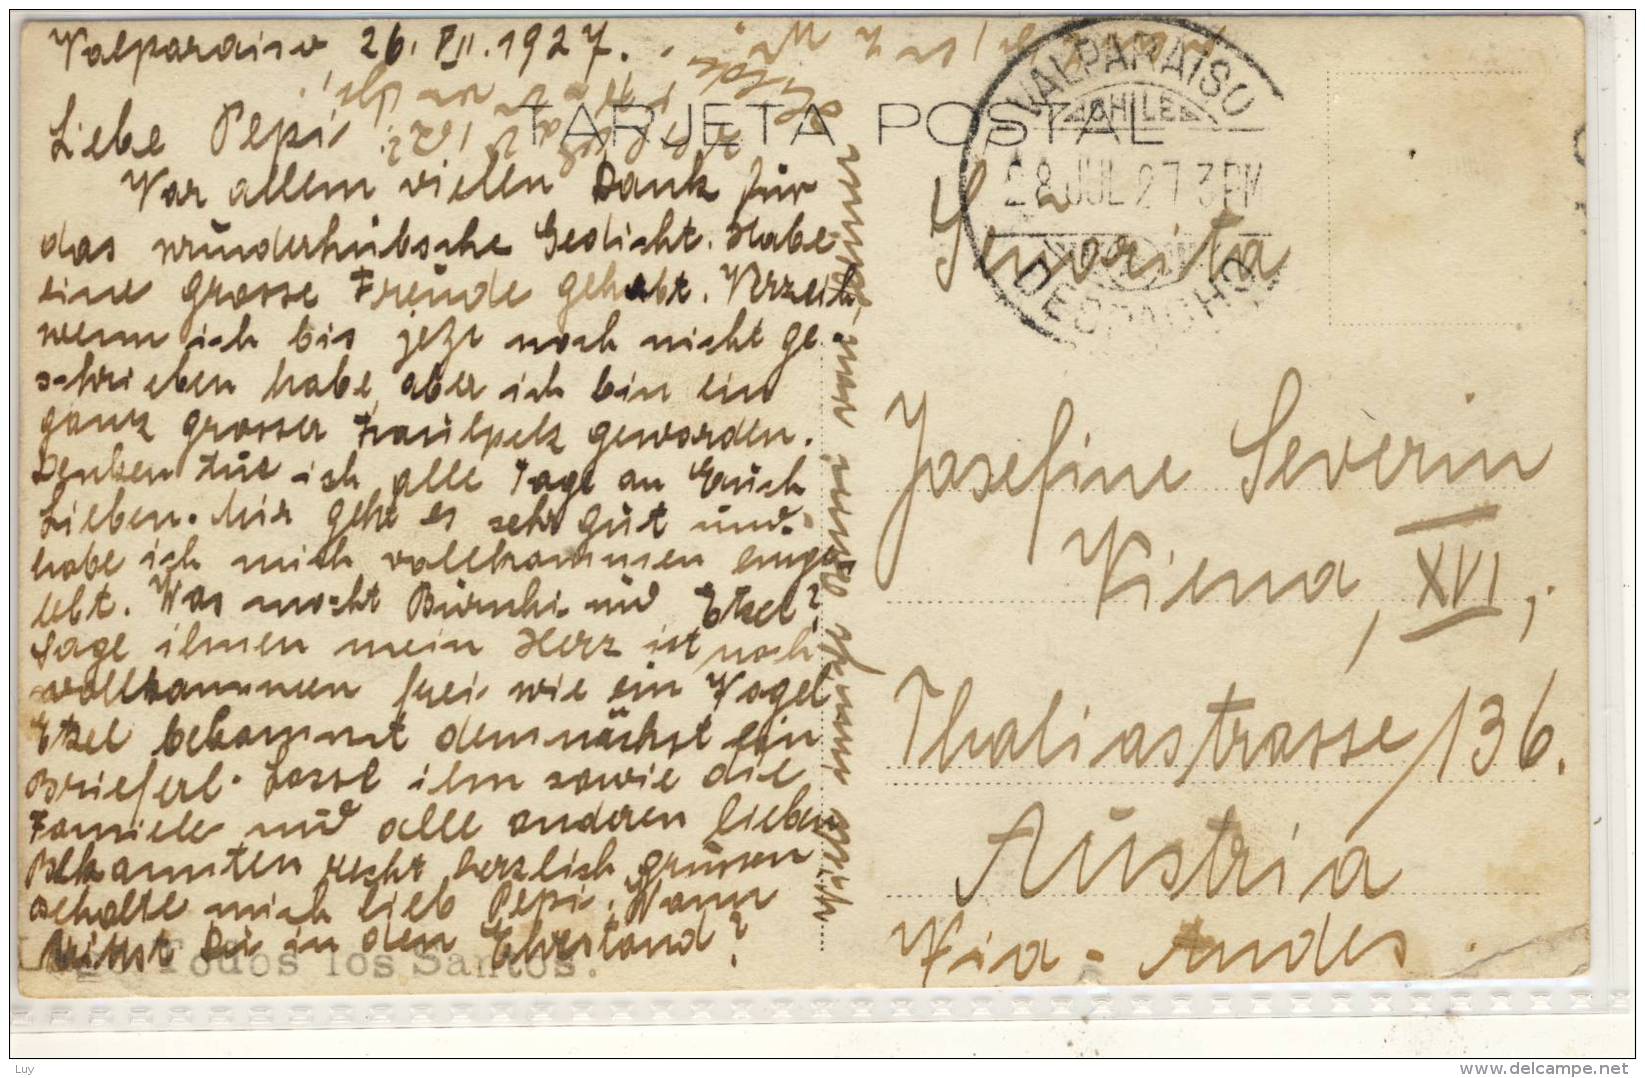 Valparaiso, 26. VII. 1927.
TARJETA POSTAL
Liebe Pepi
Vor allem vielen Dank für
das wunderhübsche Gedicht. Habe
eine grosse Freude gehabt. Verzeih,
wenn ich bis jetzt noch nicht ge
schrieben habe, aber ich bin ein
ganz grosser Faulpelz geworden.
Denken tue ich alle Tage an Euch
Lieben. Mir geht es sehr gut und
habe ich mich vollkommen einge
lebt. Was macht und Etzel?
Sage ihnen mein Herz ist noch
vollkommen frei wie ein Vogel
Etzel bekommt demnächst ein
Brieferl. Lasse ihn sowie die
Familie und alle anderen lieben
Bekannten recht herzlich grüssen
behalte mich lieb Pepi. Wann
trittst Du in den Ehestand?
Todos los Santos.
VALPARAISO
CHILE
28 JUL 27 3 PM
DESPACHO
Señorita
Josefine Severin
Viena, XVI,
Thaliastrasse/136.
Austria
Via - Andes.
Luy
delcampe.net